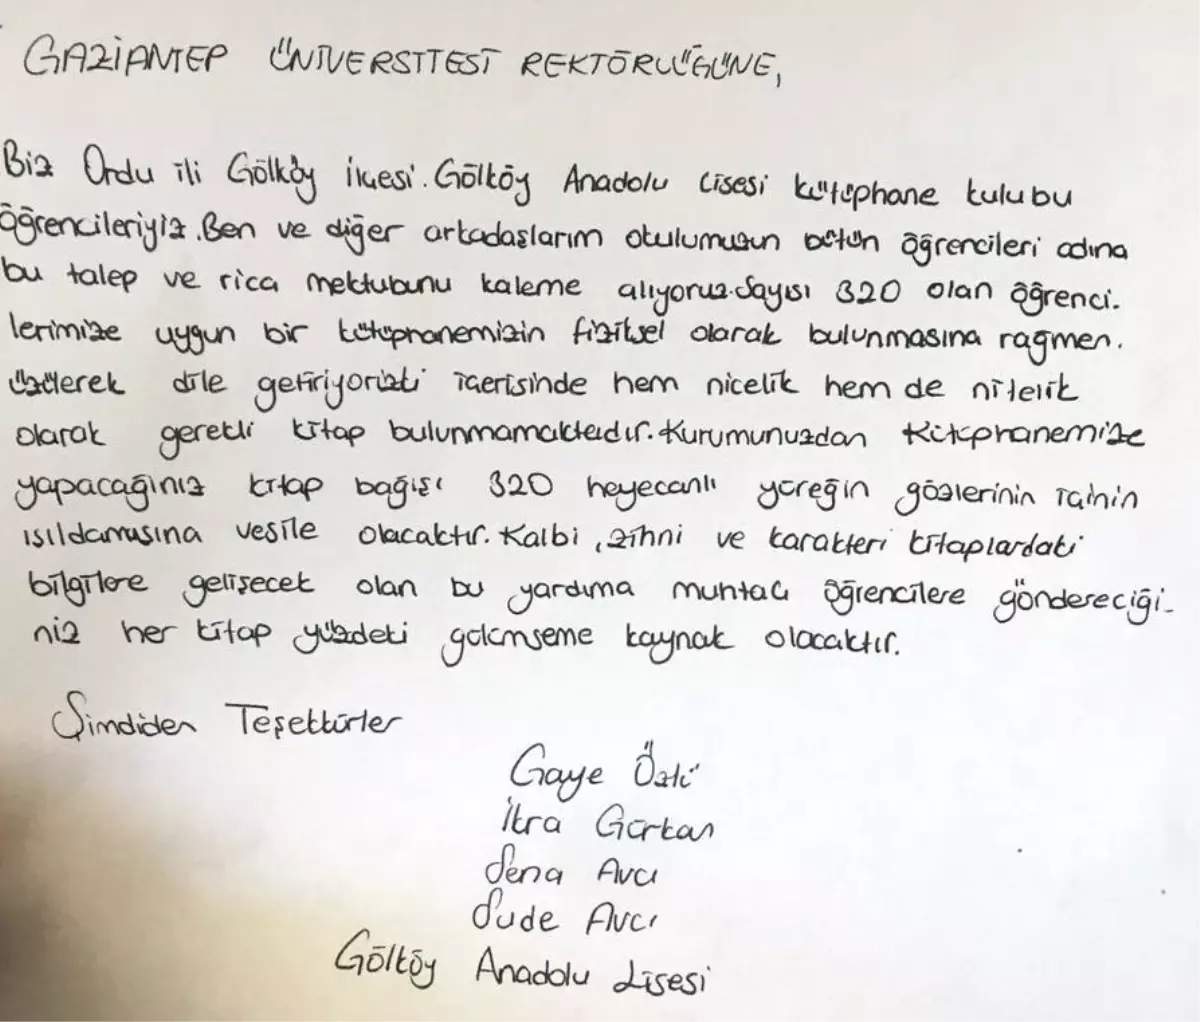 GAZİANTEP ÜNİVERSİTESİ REKTÖRLÜĞÜNE,
Biz Ordu ili Gölköy ilçesi. Gölköy Anadolu Lisesi kütüphane kulubu
öğrencileriyiz. Ben ve diğer arkadaşlarım okulumuzun bütün öğrencileri adına
bu talep ve rica mektubunu kaleme alıyoruz. Sayısı 320 olan öğrenci-
lerimize uygun bir kütüphanemizin fiziksel olarak bulunmasına rağmen.
üzülerek dile getiriyorizki içerisinde hem nicelik hem de nitelik
olarak gerekli kitap bulunmamaktadır. Kurumunuzdan kütüphanemize
yapacağınız kitap bağışı 320 heyecanlı yüreğin gözlerinin içinin
ışıldamasına vesile olacaktır. Kalbi, zihni ve karakteri kitaplardaki
bilgilere gelişecek olan bu yardıma muhtacı öğrencilere göndereceği-
niz her kitap yüzdeki gülümseme kaynak olacaktır.
Şimdiden Teşekkürler
Gaye Özlü
İkra Gürkan
Sena Avcı
Sude Avcı
Gölköy Anadolu Lisesi